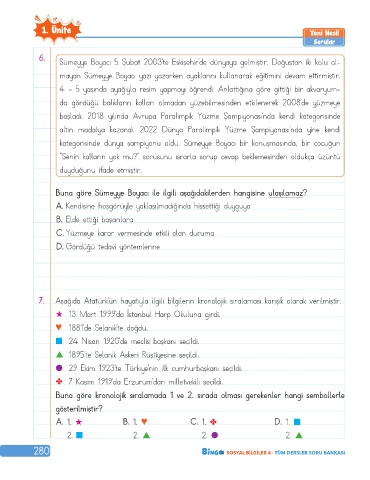 1. Ünite
Yeni Nesil
Sorular
6.
Sümeyye Boyacı 5 Şubat 2003'te Eskişehir'de dünyaya gelmiştir. Doğuştan iki kolu ol-
mayan Sümeyye Boyacı yazı yazarken ayaklarını kullanarak eğitimini devam ettirmiştir.
4 - 5 yaşında ayağıyla resim yapmayı öğrendi. Anlattığına göre gittiği bir akvaryum-
da gördüğü balıkların kolları olmadan yüzebilmesinden etkilenerek 2008'de yüzmeye
başladı. 2018 yılında Avrupa Paralimpik Yüzme Şampiyonasında kendi kategorisinde
altın madalya kazandı. 2022 Dünya Paralimpik Yüzme Şampiyonası'nda yine kendi
kategorisinde dünya şampiyonu oldu. Sümeyye Boyacı bir konuşmasında, bir çocuğun
"Senin kolların yok mu?" sorusunu ısrarla sorup cevap beklemesinden oldukça üzüntü
duyduğunu ifade etmiştir.
Buna göre Sümeyye Boyacı ile ilgili aşağıdakilerden hangisine ulaşılamaz?
A. Kendisine hoşgörüyle yaklaşılmadığında hissettiği duyguya
B. Elde ettiği başarılara
C. Yüzmeye karar vermesinde etkili olan duruma
D. Gördüğü tedavi yöntemlerine
7. Aşağıda Atatürk'ün hayatıyla ilgili bilgilerin kronolojik sıralaması karışık olarak verilmiştir.
★ 13 Mart 1999'da İstanbul Harp Okuluna girdi.
♥ 1881'de Selanik'te doğdu.
■ 24 Nisan 1920'de meclis başkanı seçildi.
▲ 1895'te Selanik Askeri Rüştiyesine seçildi.
● 29 Ekim 1923'te Türkiye'nin ilk cumhurbaşkanı seçildi.
✤ 7 Kasım 1919'da Erzurum'dan milletvekili seçildi.
Buna göre kronolojik sıralamada 1 ve 2. sırada olması gerekenler hangi sembollerle
gösterilmiştir?
A. 1. ★ B. 1. ♥ C. 1. ✤ D. 1. ■
2. ■ 2. ▲ 2. ● 2. ▲
280
BİNGO SOSYAL BİLGİLER 4 - TÜM DERSLER SORU BANKASI